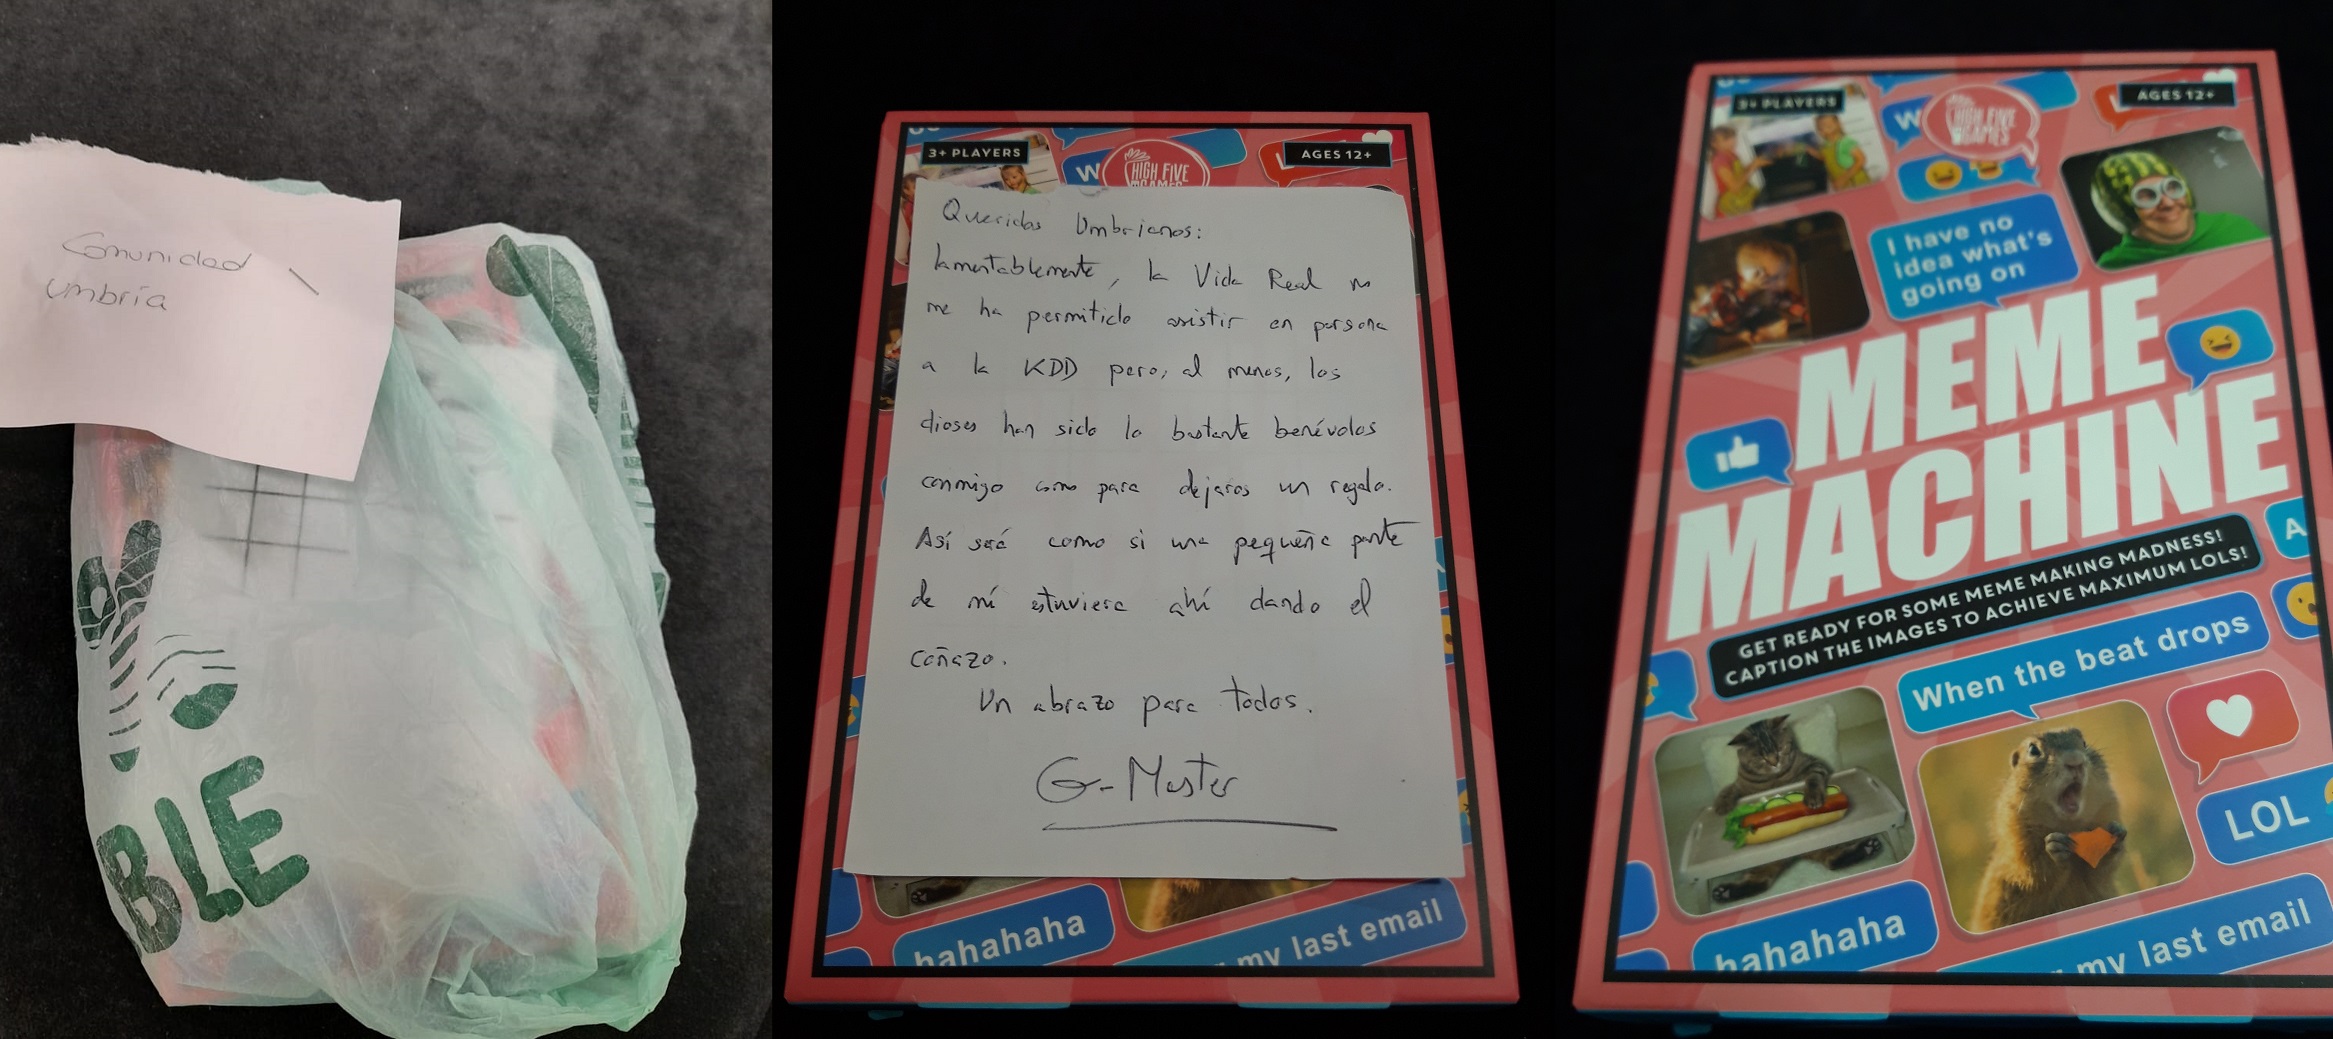 Comunidad
Umbría
BLE
3+ PLAYERS
HIGH FIVE
GAMES
AGES 12+
W
Queridos Umbrianos:
lamentablemente, la Vida Real no
me ha permitido asistir en persona
a la KDD pero, al menos, los
dioses han sido lo bastante benévolos
conmigo como para dejaros un regalo.
Así será como si una pequeña parte
de mí estuviera ahí dando el
coñazo.
Un abrazo para todos.
G-Master
hahahaha
my last email
3+ PLAYERS
HIGH FIVE
GAMES
AGES 12+
W
I have no
idea what's
going on
MEME
MACHINE
GET READY FOR SOME MEME MAKING MADNESS!
CAPTION THE IMAGES TO ACHIEVE MAXIMUM LOLS!
A
When the beat drops
LOL
hahahaha
my last email